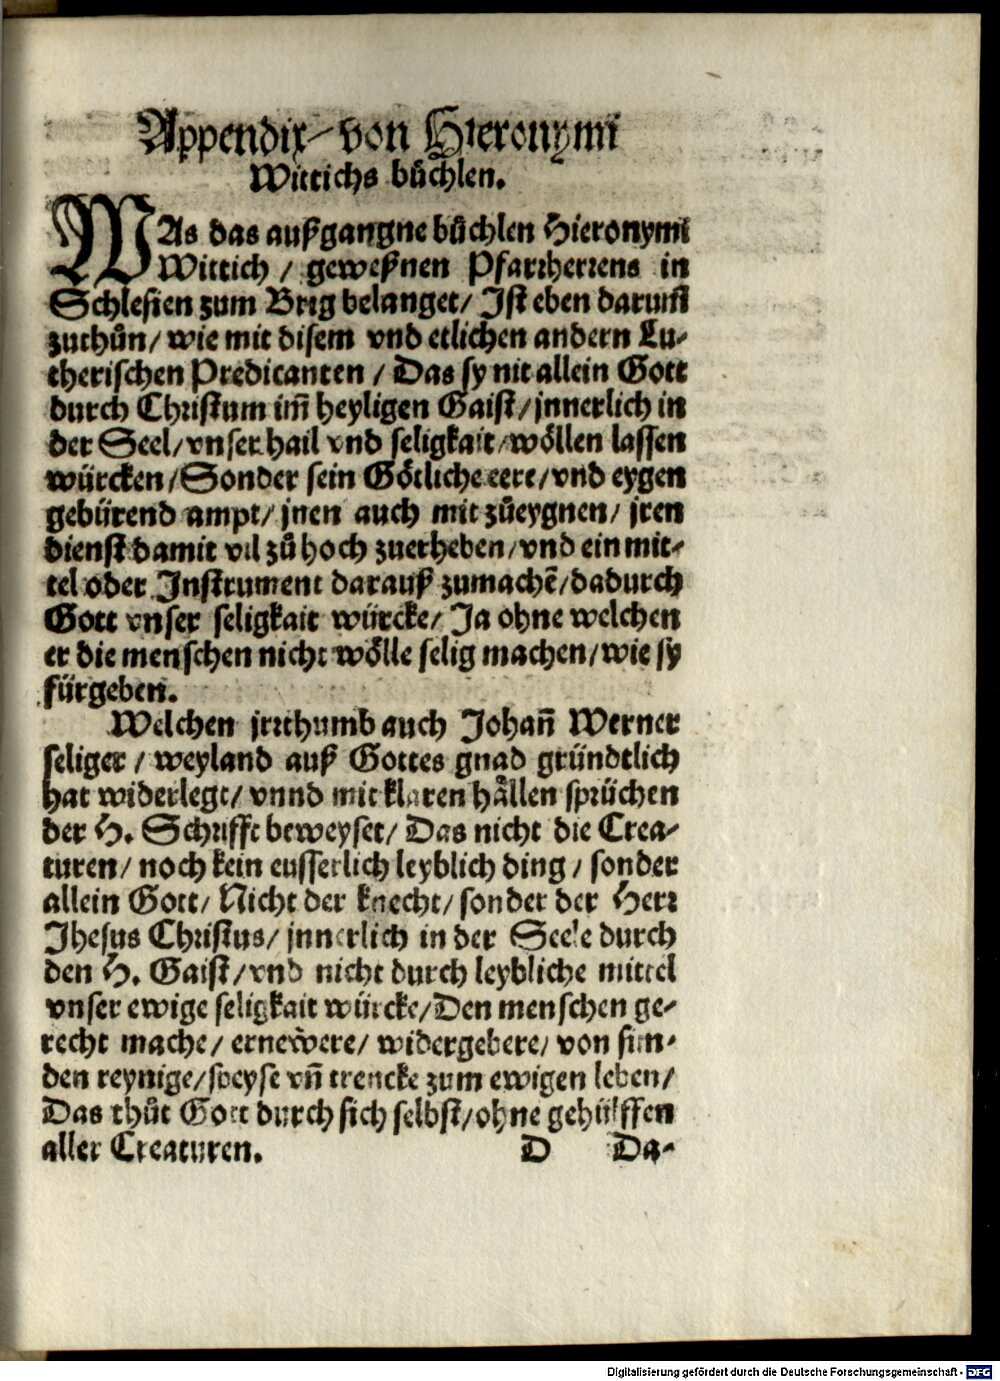 Appendix / von Hieronymi
Wittichs bůchlen.
WAs das außgangne bůchlen Hieronymi
Wittich / geweßnen Pfarrherrens in
Schlesien zum Brig belanget / Ist eben darumb
zuthůn / wie mit disem vnd etlichen andern Lu-
therischen Predicanten / Das sy nit allein Gott
durch Christum im̃ heyligen Gaist / jnnerlich in
der Seel / vnser hail vnd seligkait / wöllen lassen
würcken / Sonder sein Götliche eere / vnd eygen
gebürend ampt / jnen auch mit zůeygnen / jren
dienst damit vil zů hoch zuerheben / vnd ein mit-
tel oder Instrument darauß zumachẽ / dadurch
Gott vnser seligkait würcke / Ja ohne welchen
er die menschen nicht wölle selig machen / wie sy
fürgeben.
Welchen jrrthumb auch Johañ Werner
seliger / weyland auß Gottes gnad gründtlich
hat widerlegt / vnnd mit klaren hållen sprüchen
der H. Schrifft beweyset / Das nicht die Crea-
turen / noch kein eusserlich leyblich ding / sonder
allein Gott / Nicht der knecht / sonder der Herr
Jhesus Christus / jnnerlich in der Seele durch
den H. Gaist / vnd nicht durch leybliche mittel
vnser ewige seligkait würcke / Den menschen ge-
recht mache / ernewere / widergebere / von sün-
den reynige / speyse vñ trencke zum ewigen leben /
Das thůt Gott durch sich selbst / ohne gehülffen
aller Creaturen. D Da-
Digitalisierung gefördert durch die Deutsche Forschungsgemeinschaft - DFG